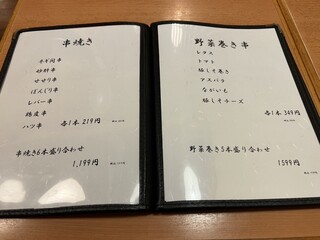 串焼き
ネギ間串
砂肝串
せせり串
ぼんじり串
レバー串
鶏皮串
ハツ串
各1本 219円
串焼き6本盛り合わせ
1,199円
野菜巻き串
レタス
トマト
梅しそ巻き
アスパラ
ながいも
梅しそチーズ
各1本 349円
野菜巻き5本盛り合わせ
1599円